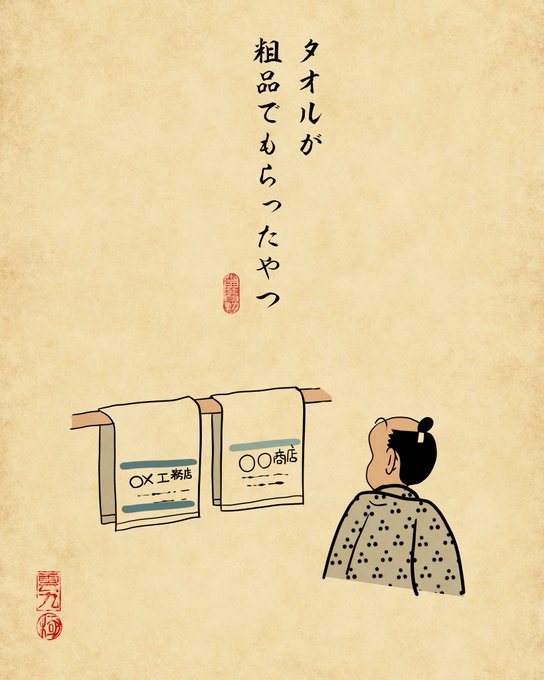 タオルが
粗品でもらったやつ
〇×工務店
〇〇商店